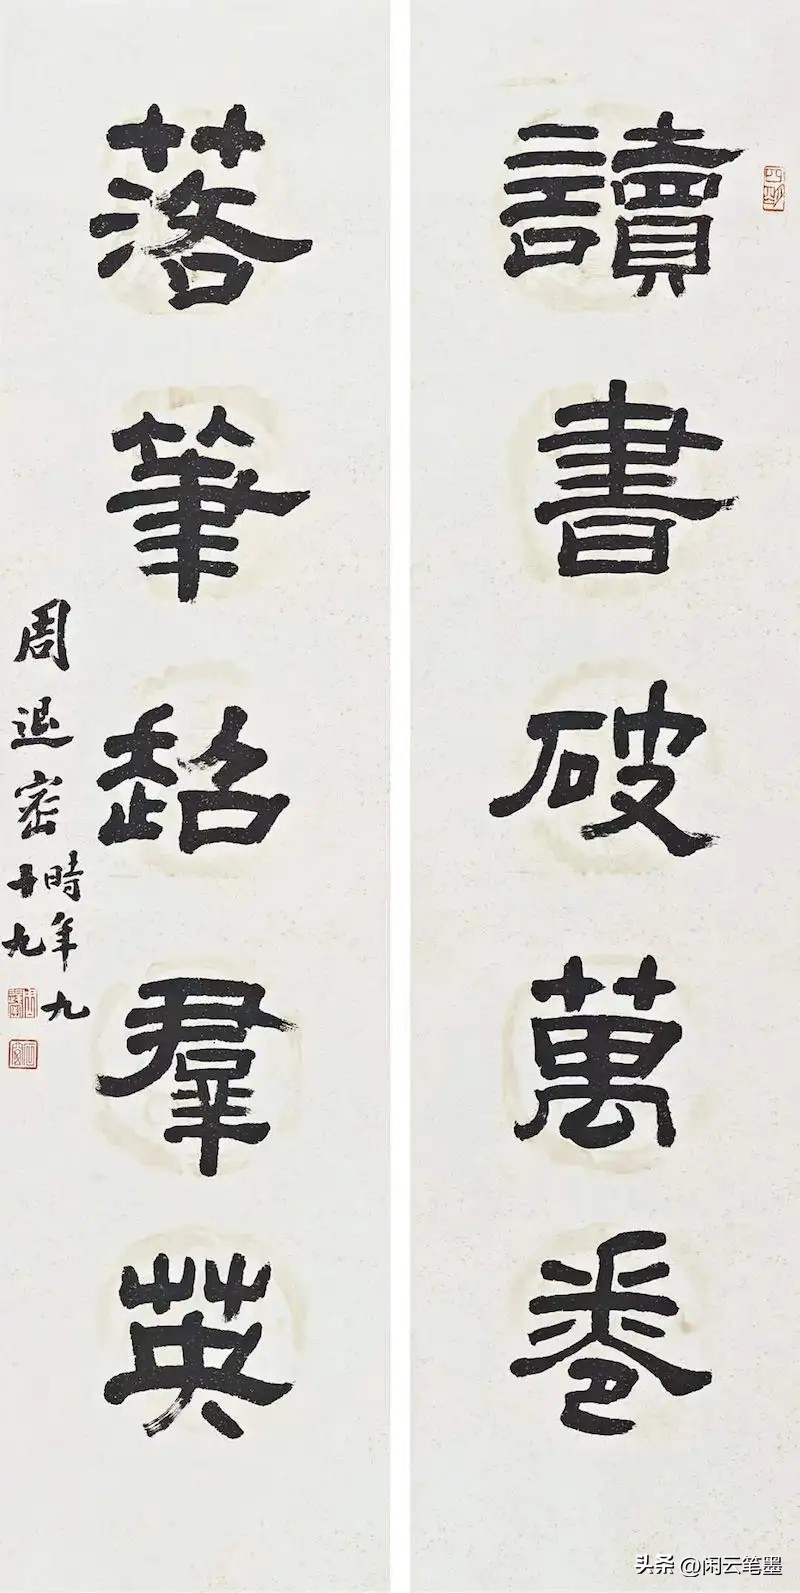 讀書破萬卷
落筆超羣英
周退密
時年九
十九
头条 @闲云笔墨